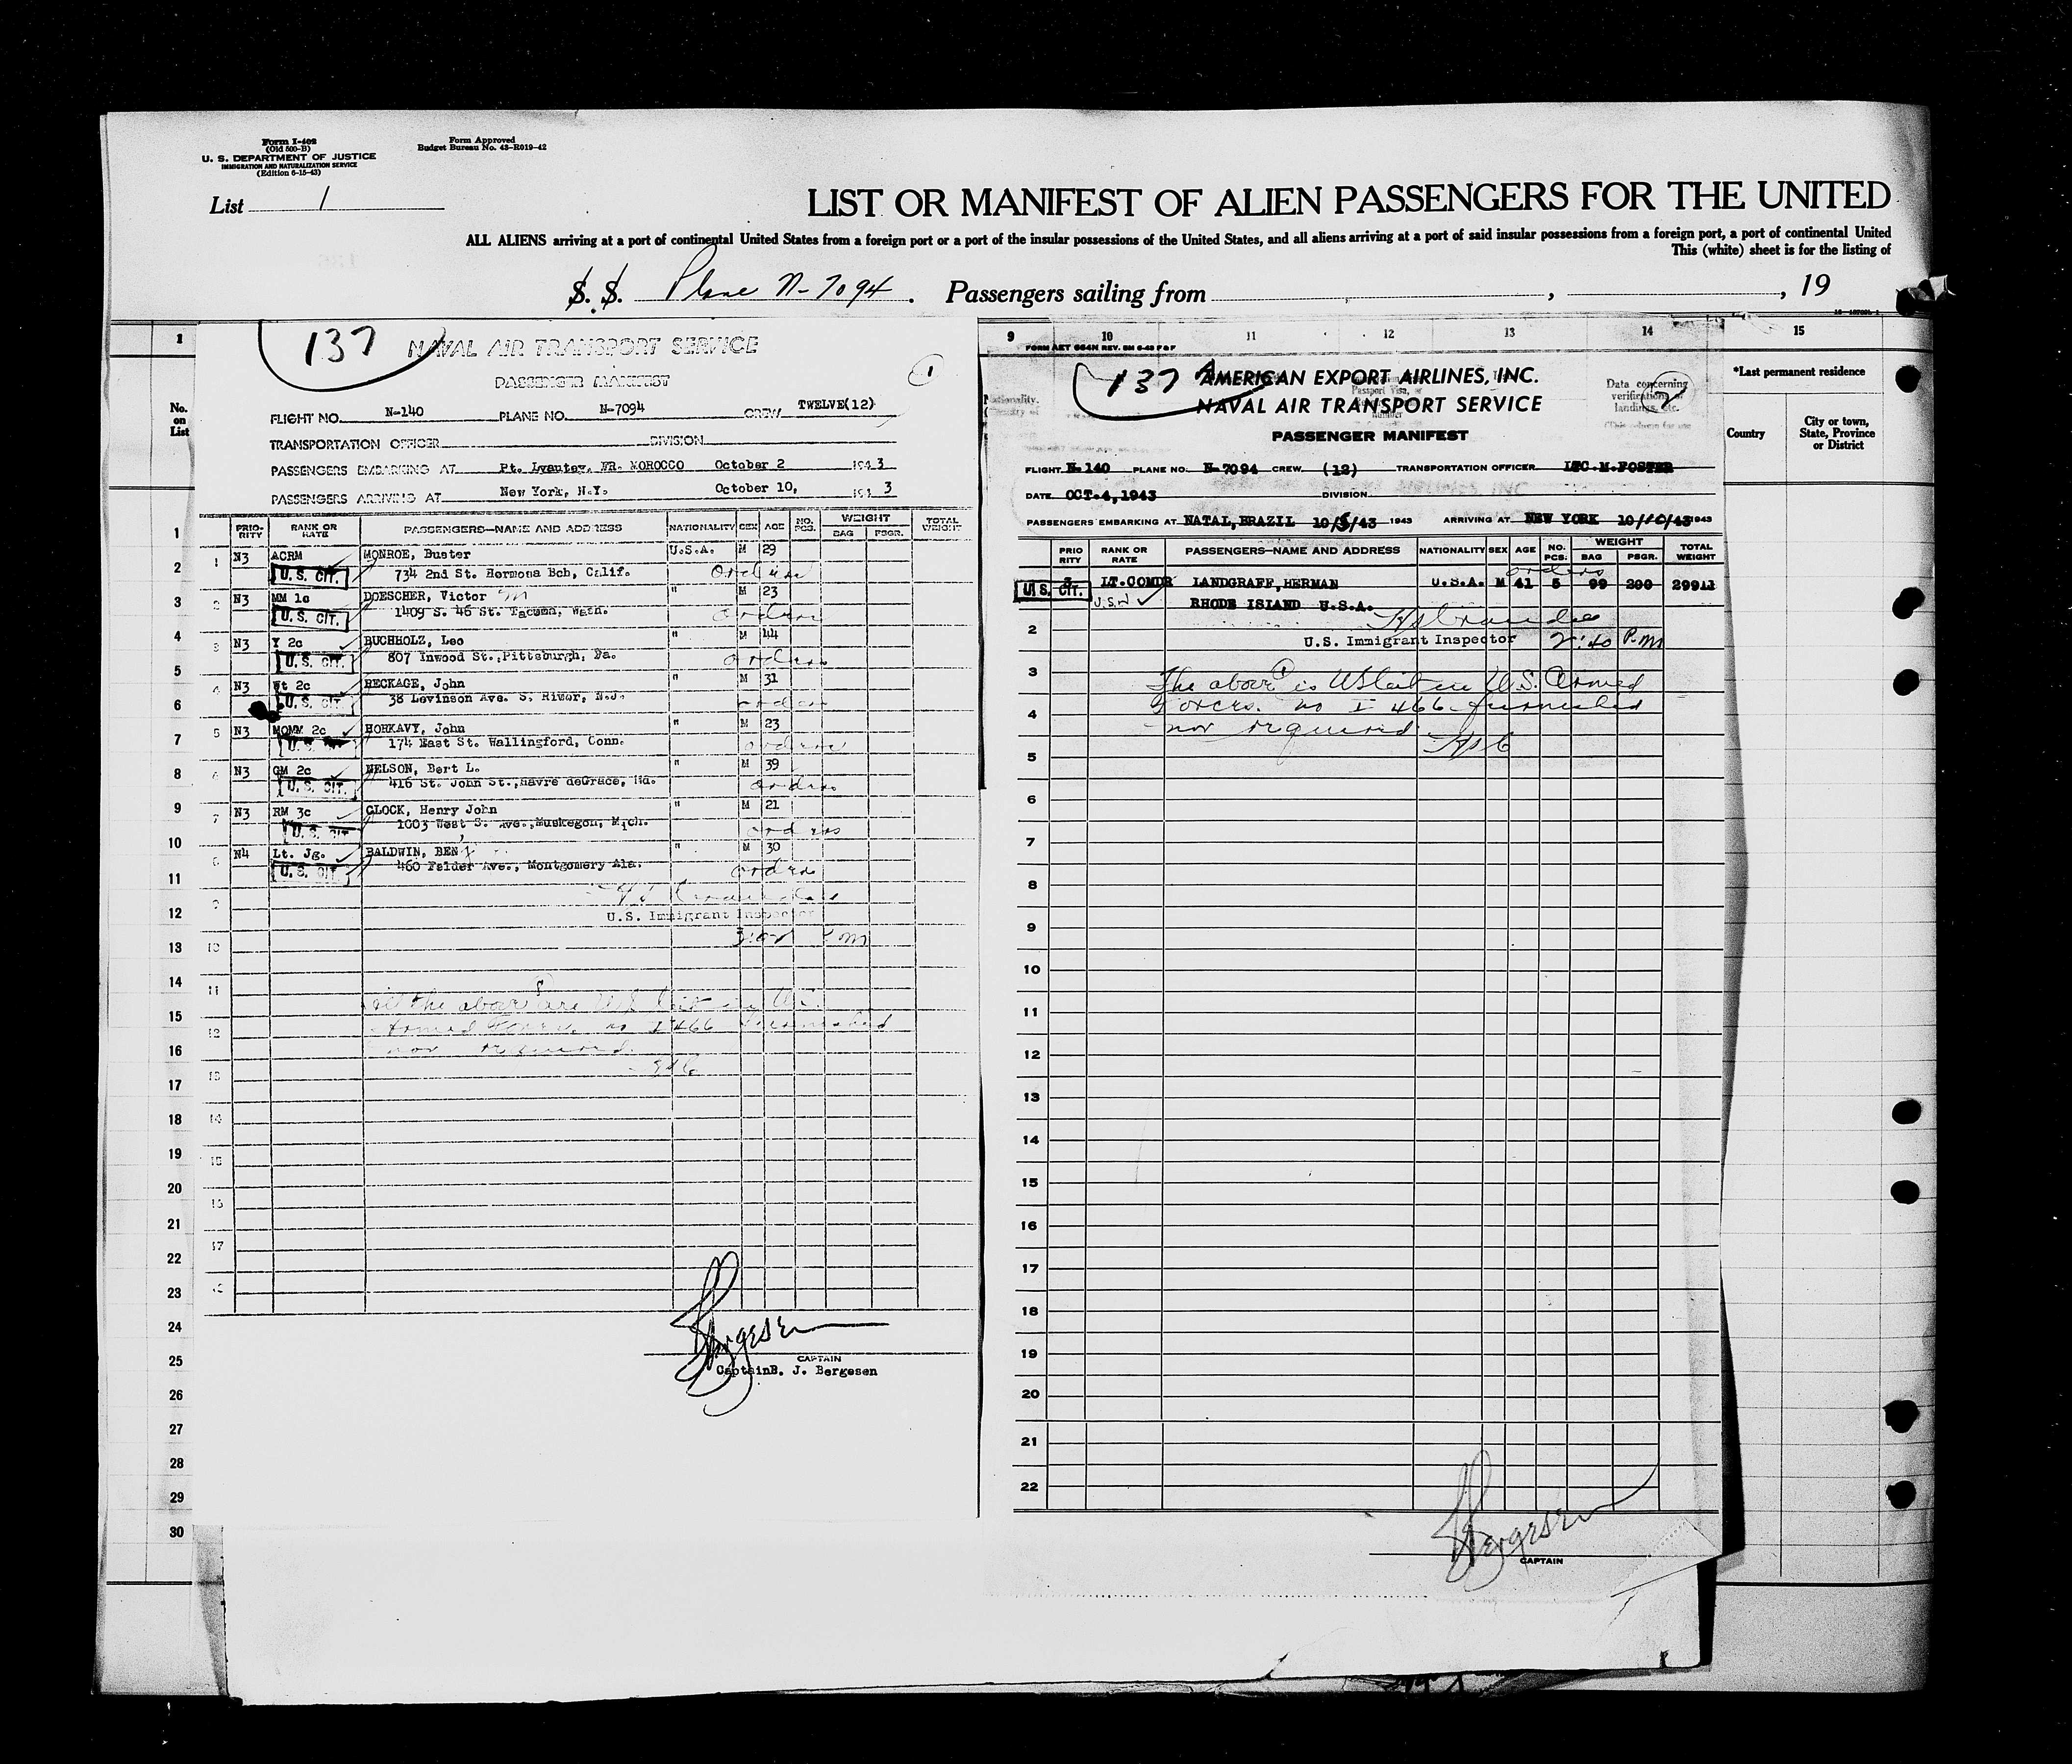 Form I-402
(Old 500-B)
U. S. DEPARTMENT OF JUSTICE
IMMIGRATION AND NATURALIZATION SERVICE
(Edition 6-15-43)
Form Approved
Budget Bureau No. 43-R019-42
List 1
LIST OR MANIFEST OF ALIEN PASSENGERS FOR THE UNITED
ALL ALIENS arriving at a port of continental United States from a foreign port or a port of the insular possessions of the United States, and all aliens arriving at a port of said insular possessions from a foreign port, a port of continental United
This (white) sheet is for the listing of
S. S. Plane N-7094. Passengers sailing from , , 19
1
No. on List
137
NAVAL AIR TRANSPORT SERVICE
PASSENGER MANIFEST
1
FLIGHT NO. N-140 PLANE NO. N-7094 CREW TWELVE(12)
TRANSPORTATION OFFICER DIVISION
PASSENGERS EMBARKING AT Pt. Lyautey, FR. MOROCCO October 2 1943
PASSENGERS ARRIVING AT New York, N.Y. October 10, 1943
PRIORITY RANK OR RATE PASSENGERS—NAME AND ADDRESS NATIONALITY SEX AGE NO. PCS. WEIGHT BAG PSGR. TOTAL WEIGHT
1 N3 ACRM MONROE, Buster U.S.A. M 29
U.S. CIT. 734 2nd St. Hermosa Bch, Calif. orders
2 N3 MM 1c DOESCHER, Victor M " M 23
U.S. CIT. 1409 S. 46 St. Tacoma, Wash. orders
3 N3 Y 2c BUCHHOLZ, Leo " M 44
U.S. CIT. 807 Inwood St.,Pittsburgh, Pa. orders
4 N3 Wt 2c RECKAGE, John " M 31
U.S. CIT. 38 Levinson Ave. S. River, N.J. orders
5 N3 MOMM 2c HORKAVY, John " M 23
U.S. 174 East St. Wallingford, Conn. orders
6 N3 GM 2c NELSON, Bert L. " M 39
U.S. CIT. 416 St. John St.,Havre deGrace, Md. orders
7 N3 RM 3c CLOCK, Henry John " M 21
U.S. CIT 1003 West S. Ave.,Muskegon, Mich. orders
8 N4 Lt. Jg. BALDWIN, BENJ " M 30
U.S. CIT. 460 Felder Ave., Montgomery Ala. orders
U.S. Immigrant Inspector
All the above 8 are US Cit in US
Armed Forces no I 466 furnished
nor required.
CAPTAIN
CaptainB. J. Bergesen
9 10 11 12 13 14 15
FORM AET 664N REV. 5M 6-43 P&F
137
AMERICAN EXPORT AIRLINES, INC.
NAVAL AIR TRANSPORT SERVICE
PASSENGER MANIFEST
Data concerning verifications of landings, etc.
2
FLIGHT N-140 PLANE NO. N-7094 CREW (12) TRANSPORTATION OFFICER LTC.M.FOSTER
DATE OCT.4,1943 DIVISION
PASSENGERS EMBARKING AT NATAL,BRAZIL 10/5/43 1943 ARRIVING AT NEW YORK 10/10/43 1943
PRIORITY RANK OR RATE PASSENGERS—NAME AND ADDRESS NATIONALITY SEX AGE NO. PCS. WEIGHT BAG PSGR. TOTAL WEIGHT
orders
U.S. CIT. 3 LT.COMDR LANDGRAFF,HERMAN U.S.A. M 41 5 99 200 299
RHODE ISLAND U.S.A.
U.S. Immigrant Inspector 2:40 P.M
The above 1 is US Cit in U.S. Armed
Forces. no I 466 furnished
nor required.
Bergesen
CAPTAIN
*Last permanent residence
Country
City or town, State, Province or District